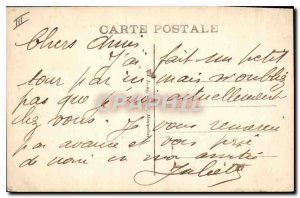 III
CARTE POSTALE
Chers Amis
J'ai fait un petit
tour par ici mais n'oubliez
pas que j'irai actuellement
chez vous. Je vous remercie
par avance et vous prie
de mon amitié
Juliette